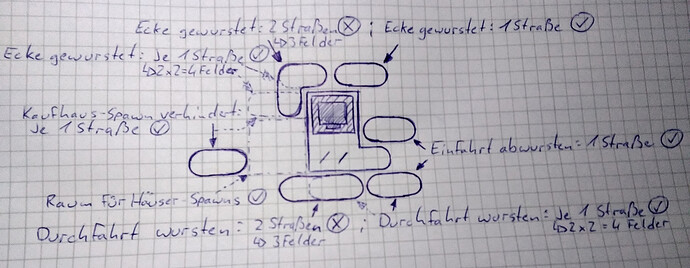 Ecke gewurstet: 2 Straßen ; Ecke gewurstet: 1 Straße
↳ 3 Felder
Ecke gewurstet: Je 1 Straße
↳ 2x2=4 Felder
Kaufhaus-Spawn verhindert:
Je 1 Straße
Einfahrt abwursten = 1 Straße
Raum für Häuser-Spawns
Durchfahrt wursten: 2 Straßen ; Durchfahrt wursten: Je 1 Straße
↳ 3 Felder ↳ 2x2=4 Felder